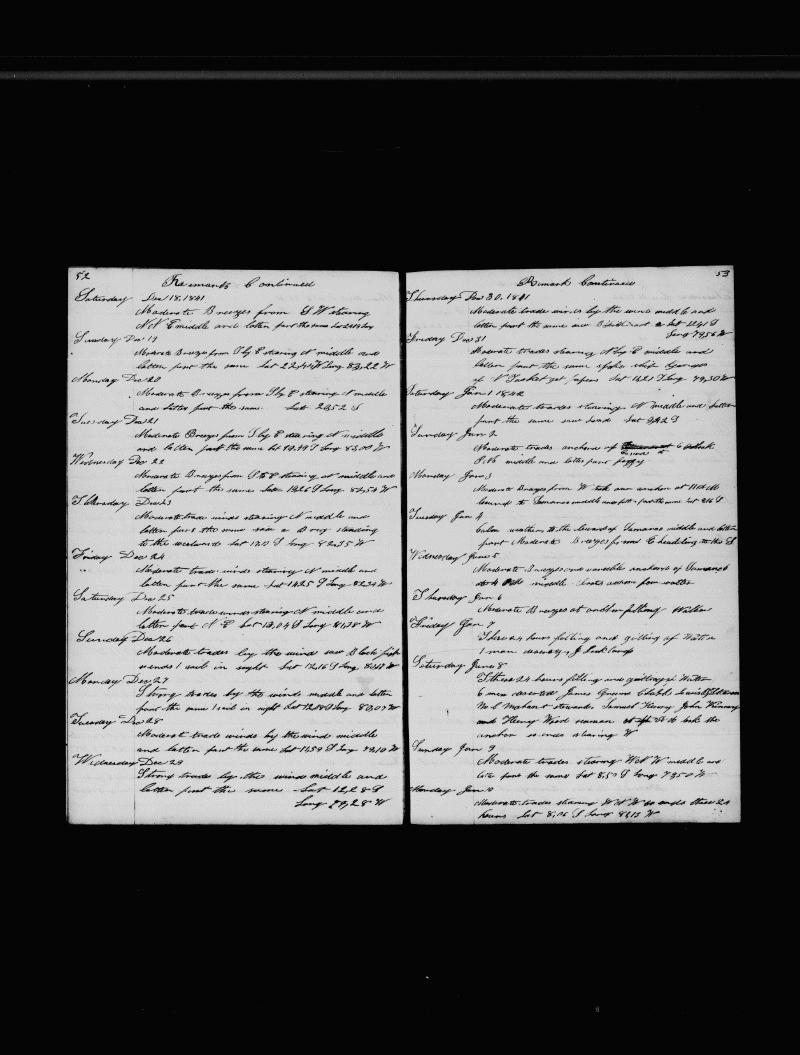 52
Remarks Continued
Saturday Dec 18, 1841
Moderate Breezes from S W stearing
N N E middle and latter part the same
Sunday Dec 19
Moderate Breezes from S by E stearing N middle and
latter part the same Lat 22,44 Long 83,22 W
Monday Dec 20
Moderate Breezes from S by E stearing N middle
and latter part the same Lat 20,52 S
Tuesday Dec 21
Moderate Breezes from S by E stearing N middle
and latter part the same Lat Long 83,00 W
Wednesday Dec 22
Moderate Breezes from S stearing N middle and
latter part the same Lat S Long 82,54 W
Thursday Dec 23
Moderate trade winds stearing N middle and
latter part the same saw a Brig standing
to the westward Lat S Long 82,35 W
Friday Dec 24
Moderate trade winds stearing N middle and
latter part the same Lat 14,25 S Long 82,24 W
Saturday Dec 25
Moderate trade winds stearing N middle and
latter part N E Lat 13,04 S Long 81,28 W
Sunday Dec 26
Moderate trades by the wind saw Black fish
ends 1 sail in sight Lat 12,16 S Long W
Monday Dec 27
Strong trades by the wind middle and latter
part the same 1 sail in sight Lat S Long 80,07 W
Tuesday Dec 28
Moderate trade winds by the wind middle
and latter part the same Lat 11,59 S Long 79,10 W
Wednesday Dec 29
Strong trades by the wind middle and
latter part the same Lat 12,28 S
Long 79,28 W
53
Remark Continued
Thursday Dec 30, 1841
Moderate trade winds by the wind middle and
latter part the same saw Lat 12,41 S
Long 79,56 W
Friday Dec 31
Moderate trades stearing N by E middle and
latter part the same spoke ship Ganges
of N Tucket Lat 11,21 S Long 79,30 W
Saturday Jan 1 1842
Moderate trades stearing N middle and latter
part the same saw land Lat 9,42 S
Sunday Jan 2
Moderate trades anchord of 6 oclock
P.M. middle and latter part foggy
Monday Jan 3
Moderate Breezes from W took our anchor at 11 AM
bound to Tumanas middle and latter part the same Lat S
Tuesday Jan 4
Calm weather to the leward of Tumanas middle and latter
part Moderate Breezes from E heading to the S
Wednesday Jan 5
Moderate Breezes and variable anchord of Tumanas
at 4 PM middle boats ashore for water
Thursday Jan 6
Moderate Breezes at anchor filling Water
Friday Jan 7
These 24 hours filling and getting of Water
1 man deserty J
Saturday Jan 8
These 24 hours filling and getting of Water
6 men deserted James Greene Lewis
steward Samuel Henry John Kenney
and Henry Wood seaman at took the
anchor so ends stearing W
Sunday Jan 9
Moderate trades stearing W N W middle and
late part the same Lat 8,50 S Long 79,50 W
Monday Jan 10
Moderate trades stearing W N W so ends these 24
hours Lat 8,05 S Long 81,15 W